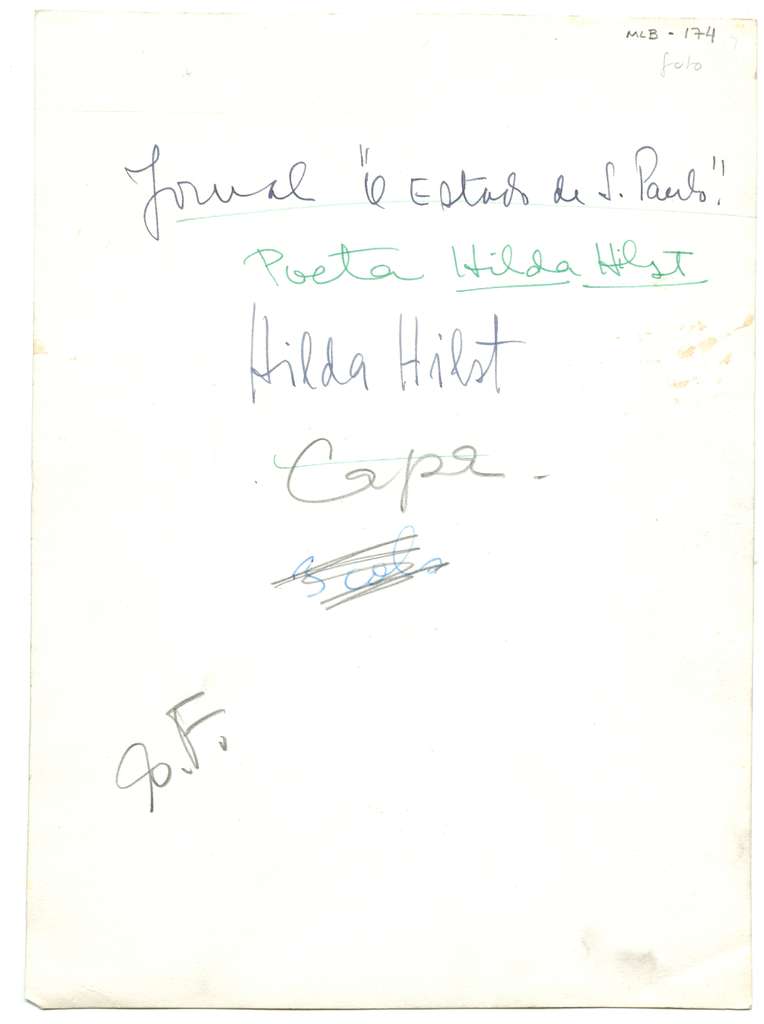 MLB - 174
foto
Jornal "O Estado de S. Paulo".
Poeta Hilda Hilst
Hilda Hilst
Capa -